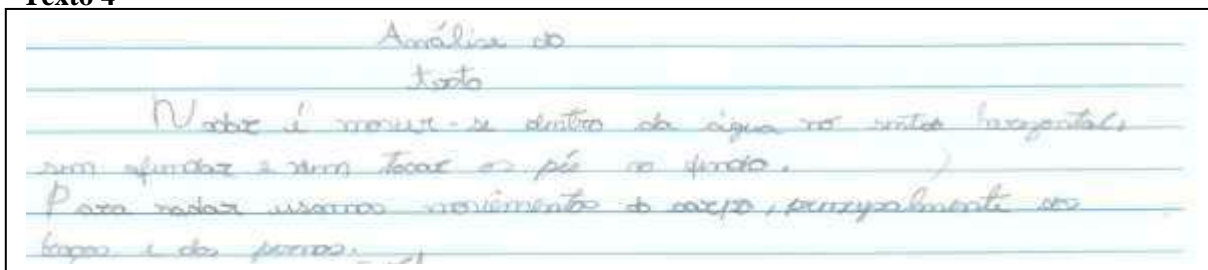 Texto 4
Análise do
texto
Nadar é mover-se dentro da água no sentido horizontal,
sem afundar e sem tocar os pés no fundo.
Para nadar usamos movimentos do corpo, principalmente dos
braços e das pernas.